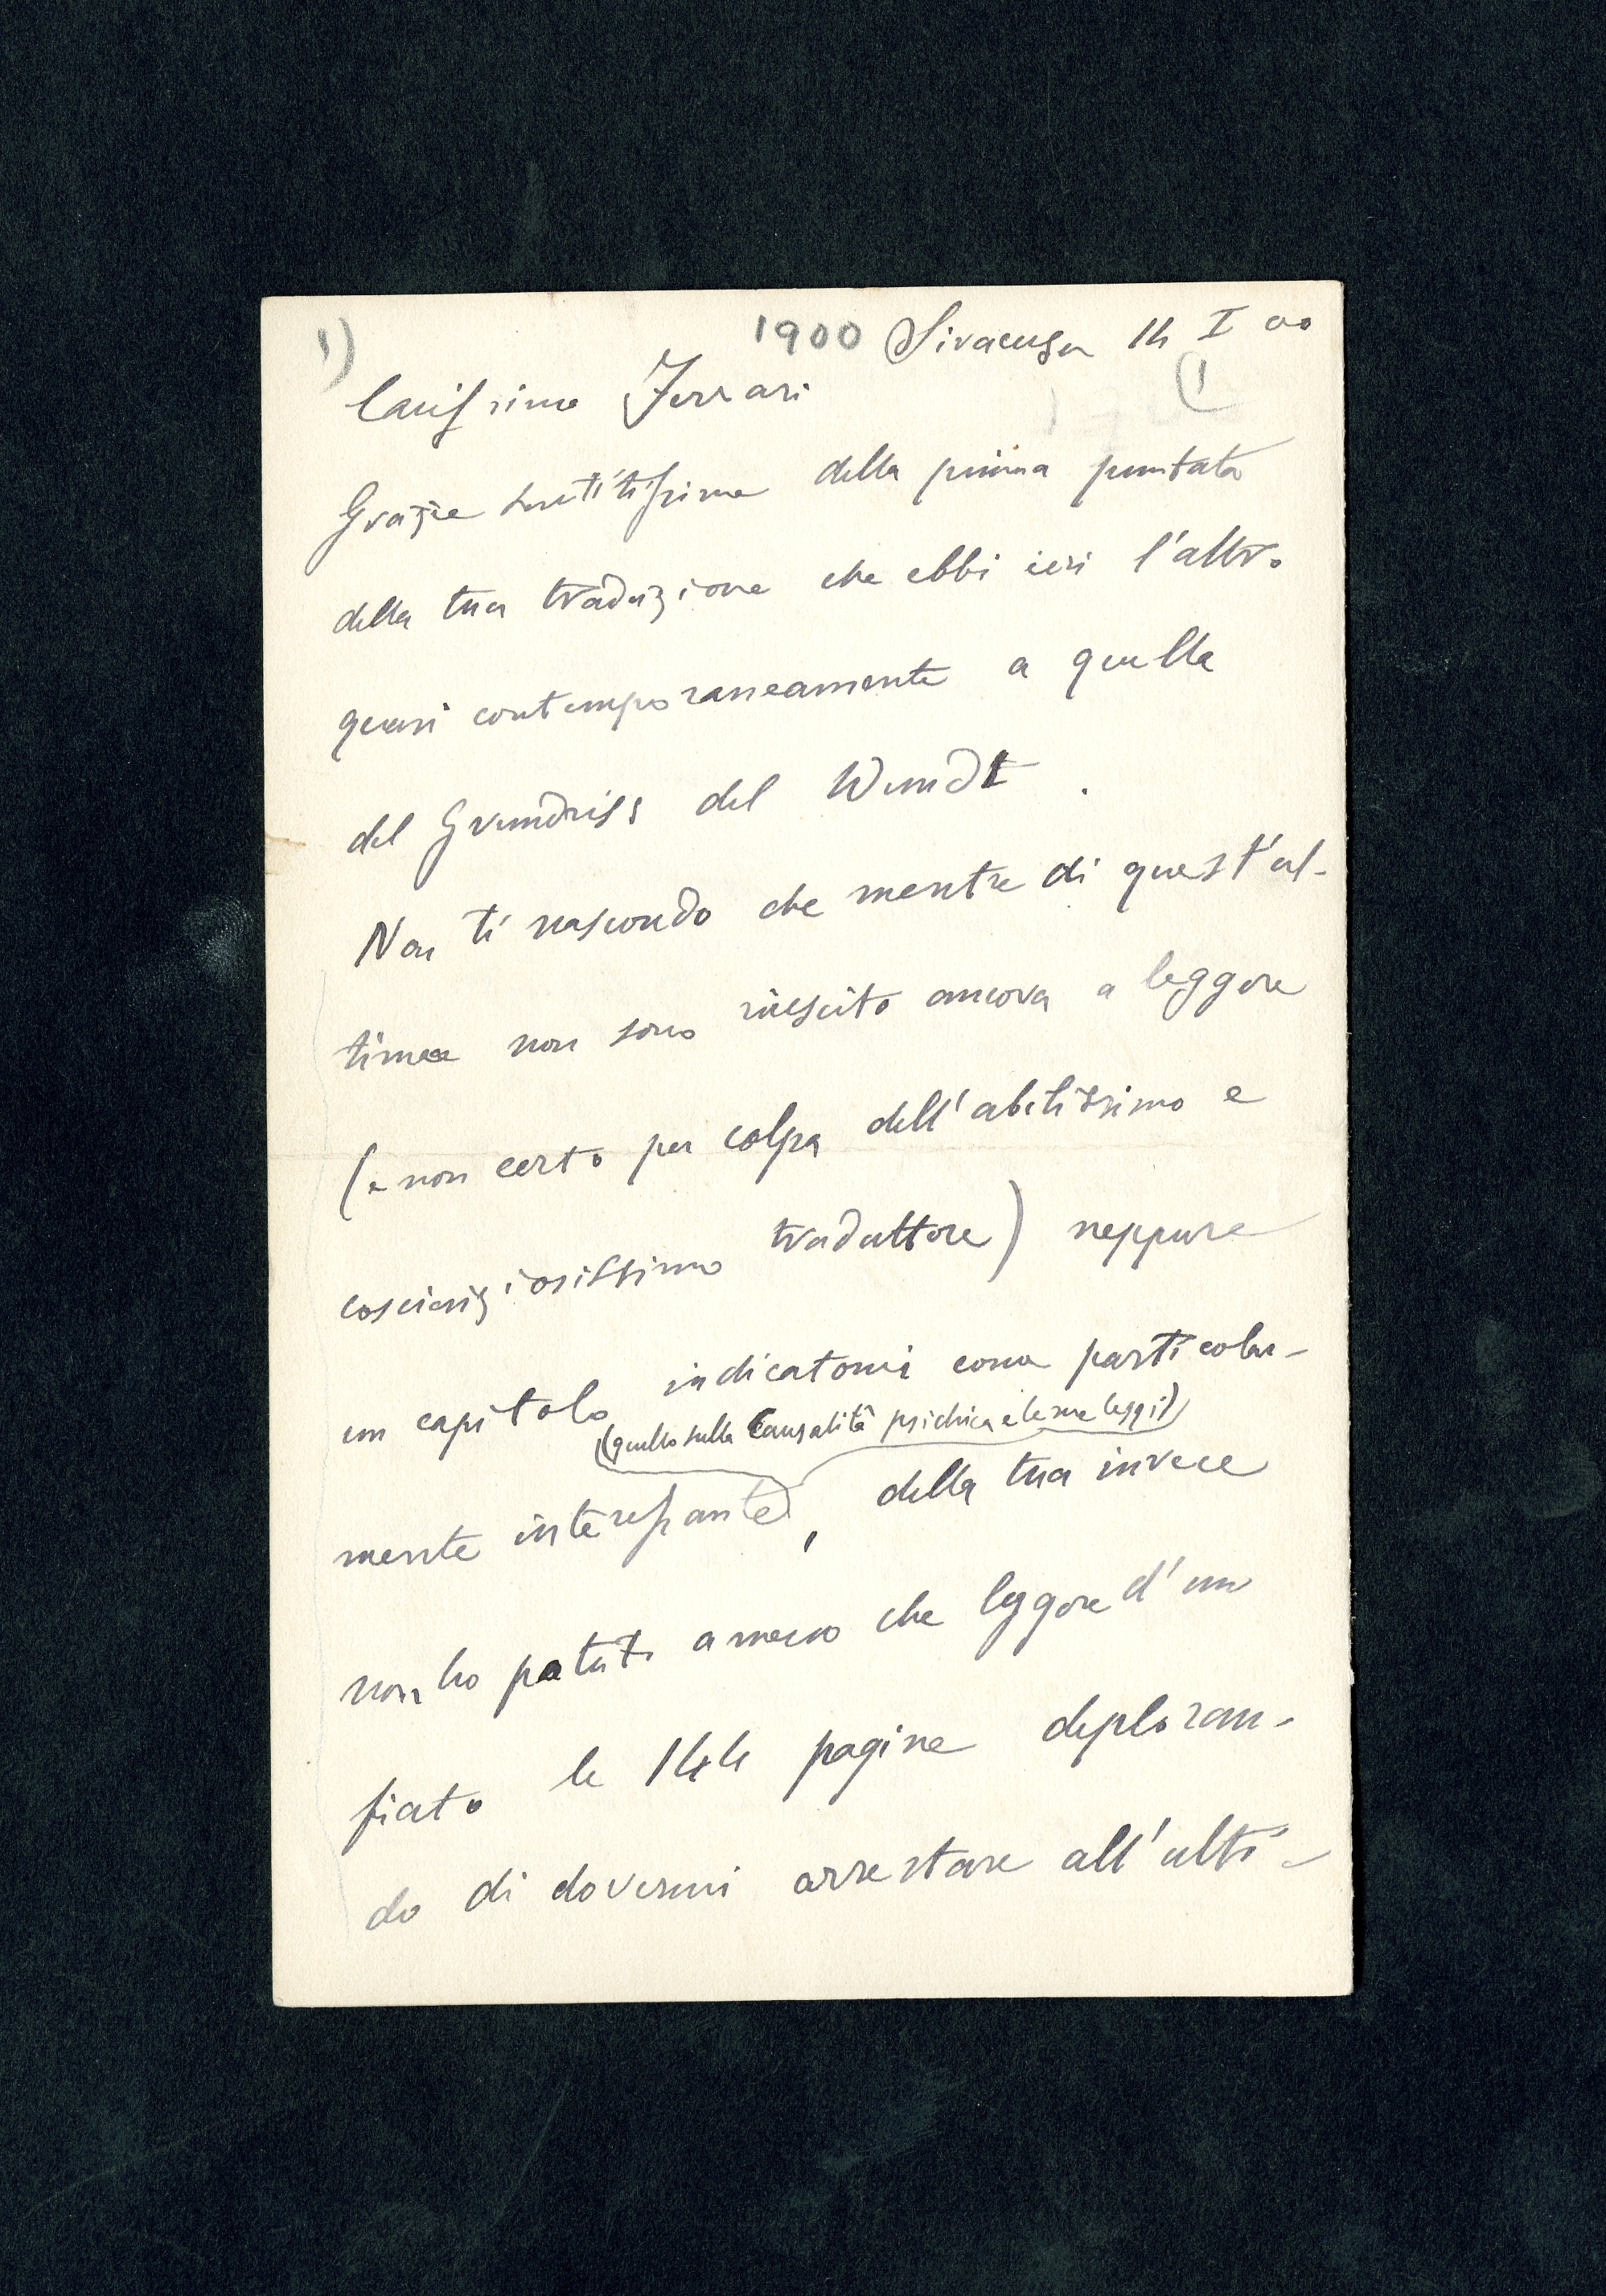 1) 1900 Siracusa 14 I 00
(1
Carissimo Ferrari
Grazie sentitissime della prima puntata
della tua traduzione che ebbi ieri l'altro
quasi contemporaneamente a quella
del Grundriss del Wundt.
Non ti nascondo che mentre di quest'ul-
tima non sono riescito ancora a leggere
(e non certo per colpa dell'abilissimo e
coscienziosissimo traduttore) neppure
un capitolo indicatomi come particolar-
(quello sulla Causalità psichica e le sue leggi)
mente interessante, della tua invece
non ho potuto a meno che leggere d'un
fiato le 144 pagine deploran-
do di dovermi arrestare all'ulti-